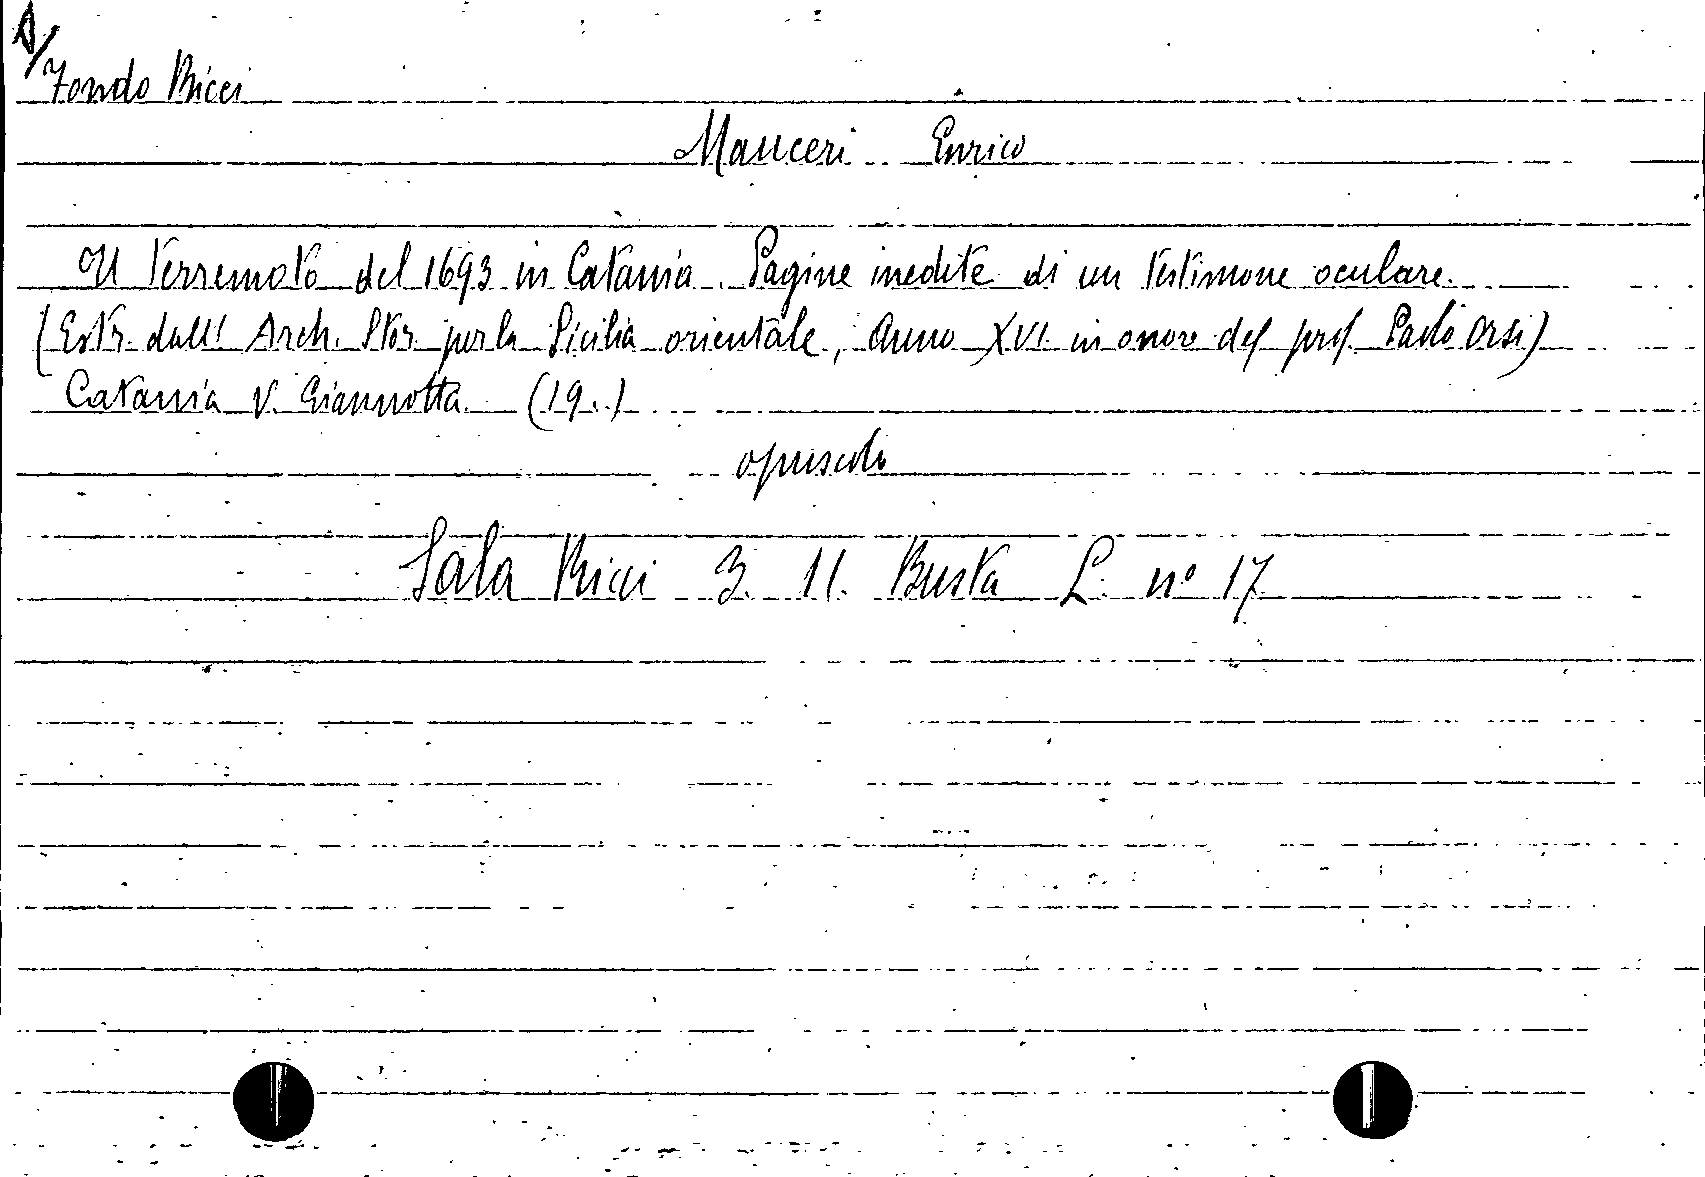 A/
Fondo Ricci
Mauceri Enrico
Il Terremoto del 1693 in Catania. Pagine inedite di un testimone oculare.
(Estr. dall' Arch. Stor. per la Sicilia orientale, Anno XVI in onore del prof. Paolo Orsi)
Catania V. Giannotta (19..)
opuscolo
Sala Ricci 3. 11. Busta L. nº 17